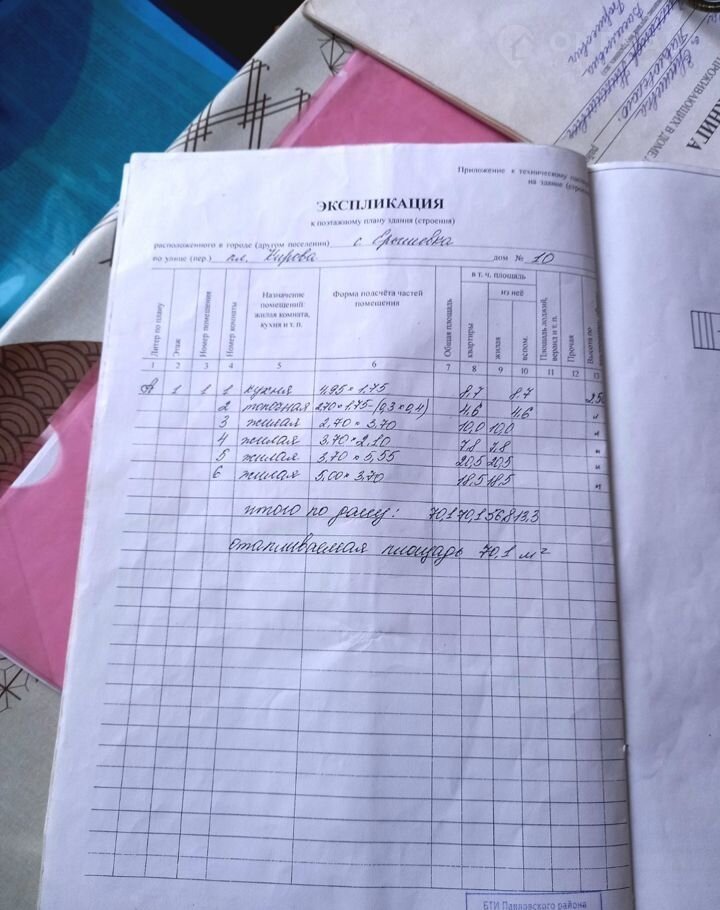 КНИГА
ПРОЖИВАЮЩИХ В ДОМЕ
Приложение к техническому
на здание
ЭКСПЛИКАЦИЯ
к поэтажному плану здания (строения)
расположенного в городе (другом поселении) с. Ерышевка
по улице (пер.) пл. Кирова дом № 10
Литер по плану
Этаж
Номер помещения
Номер комнаты
Назначение помещений: жилая комната, кухня и т. п.
Форма подсчёта частей помещения
Общая площадь
в т. ч. площадь
квартиры
из неё
жилая
вспом.
Площадь лоджий, веранд и т. п.
Прочая
Высота по
1 2 3 4 5 6 7 8 9 10 11 12 13
А 1 1 1 кухня 4,95 × 1,75 8,7 8,7
2 топочная 2,70 × 1,75 - (0,3 × 0,4) 4,6 4,6 "
3 жилая 2,70 × 3,70 10,0 10,0 "
4 жилая 3,70 × 2,10 7,8 7,8 "
5 жилая 3,70 × 5,55 20,5 20,5 "
6 жилая 5,00 × 3,70 18,5 18,5 "
итого по дому: 70,1 70,1 56,8 13,3
отапливаемая площадь 70,1 м²
БТИ Павловского района